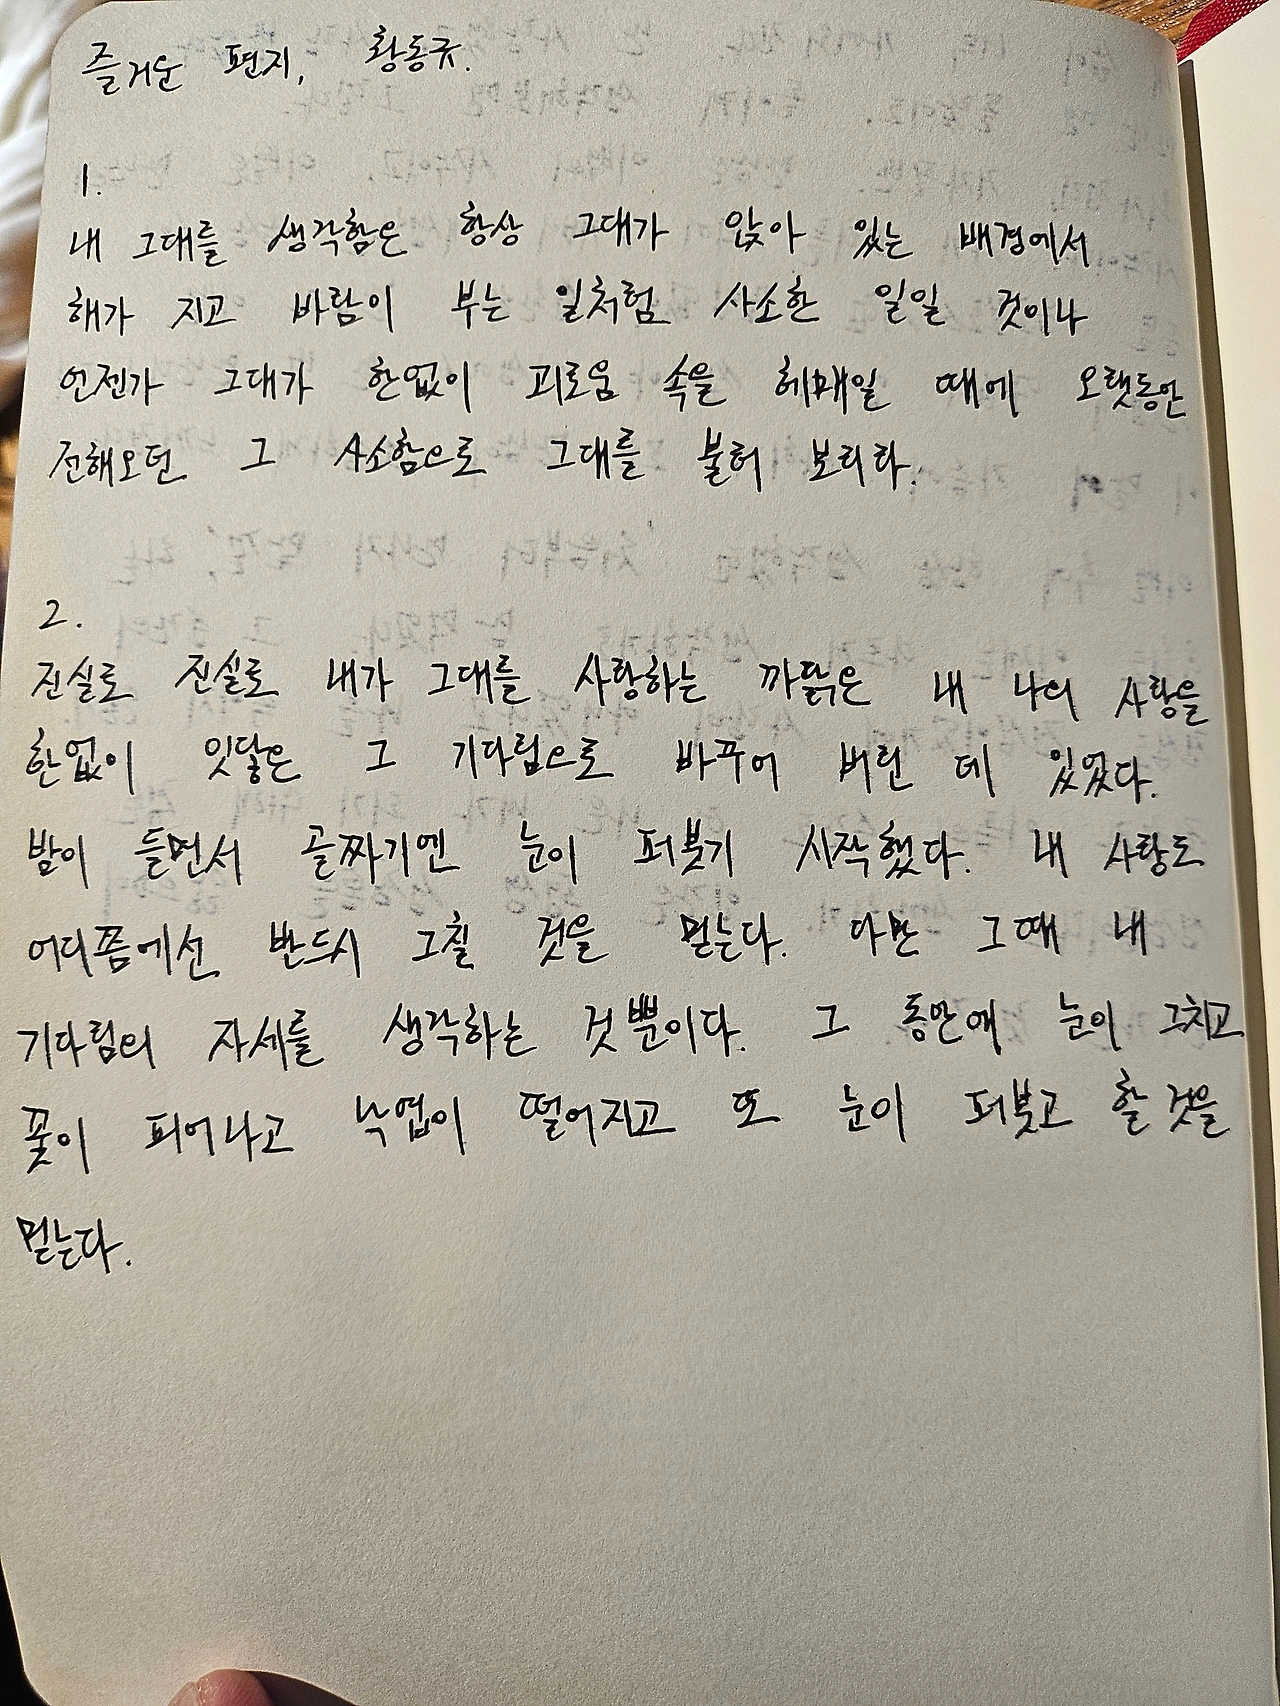 즐거운 편지, 황동규.
1.
내 그대를 생각함은 항상 그대가 앉아 있는 배경에서
해가 지고 바람이 부는 일처럼 사소한 일일 것이나
언젠가 그대가 한없이 괴로움 속을 헤매일 때에 오랫동안
전해오던 그 사소함으로 그대를 불러 보리라.
2.
진실로 진실로 내가 그대를 사랑하는 까닭은 내 나의 사랑을
한없이 잇닿은 그 기다림으로 바꾸어 버린 데 있었다.
밤이 들면서 골짜기엔 눈이 퍼붓기 시작했다. 내 사랑도
어디쯤에선 반드시 그칠 것을 믿는다. 다만 그때 내
기다림의 자세를 생각하는 것뿐이다. 그 동안에 눈이 그치고
꽃이 피어나고 낙엽이 떨어지고 또 눈이 퍼붓고 할 것을
믿는다.